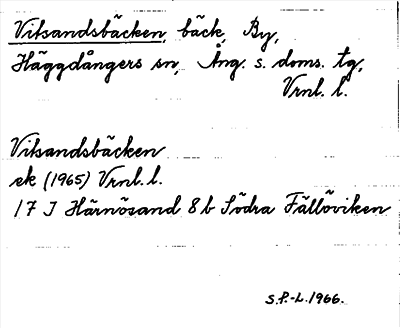 Vitsandsbäcken, bäck, By,
Häggdångers sn, Ång. s. doms. tg,
Vrnl. l.
Vitsandsbäcken
ek (1965) Vrnl. l.
17 J Härnösand 8 b Södra Fällöviken
S.P.-L. 1966.